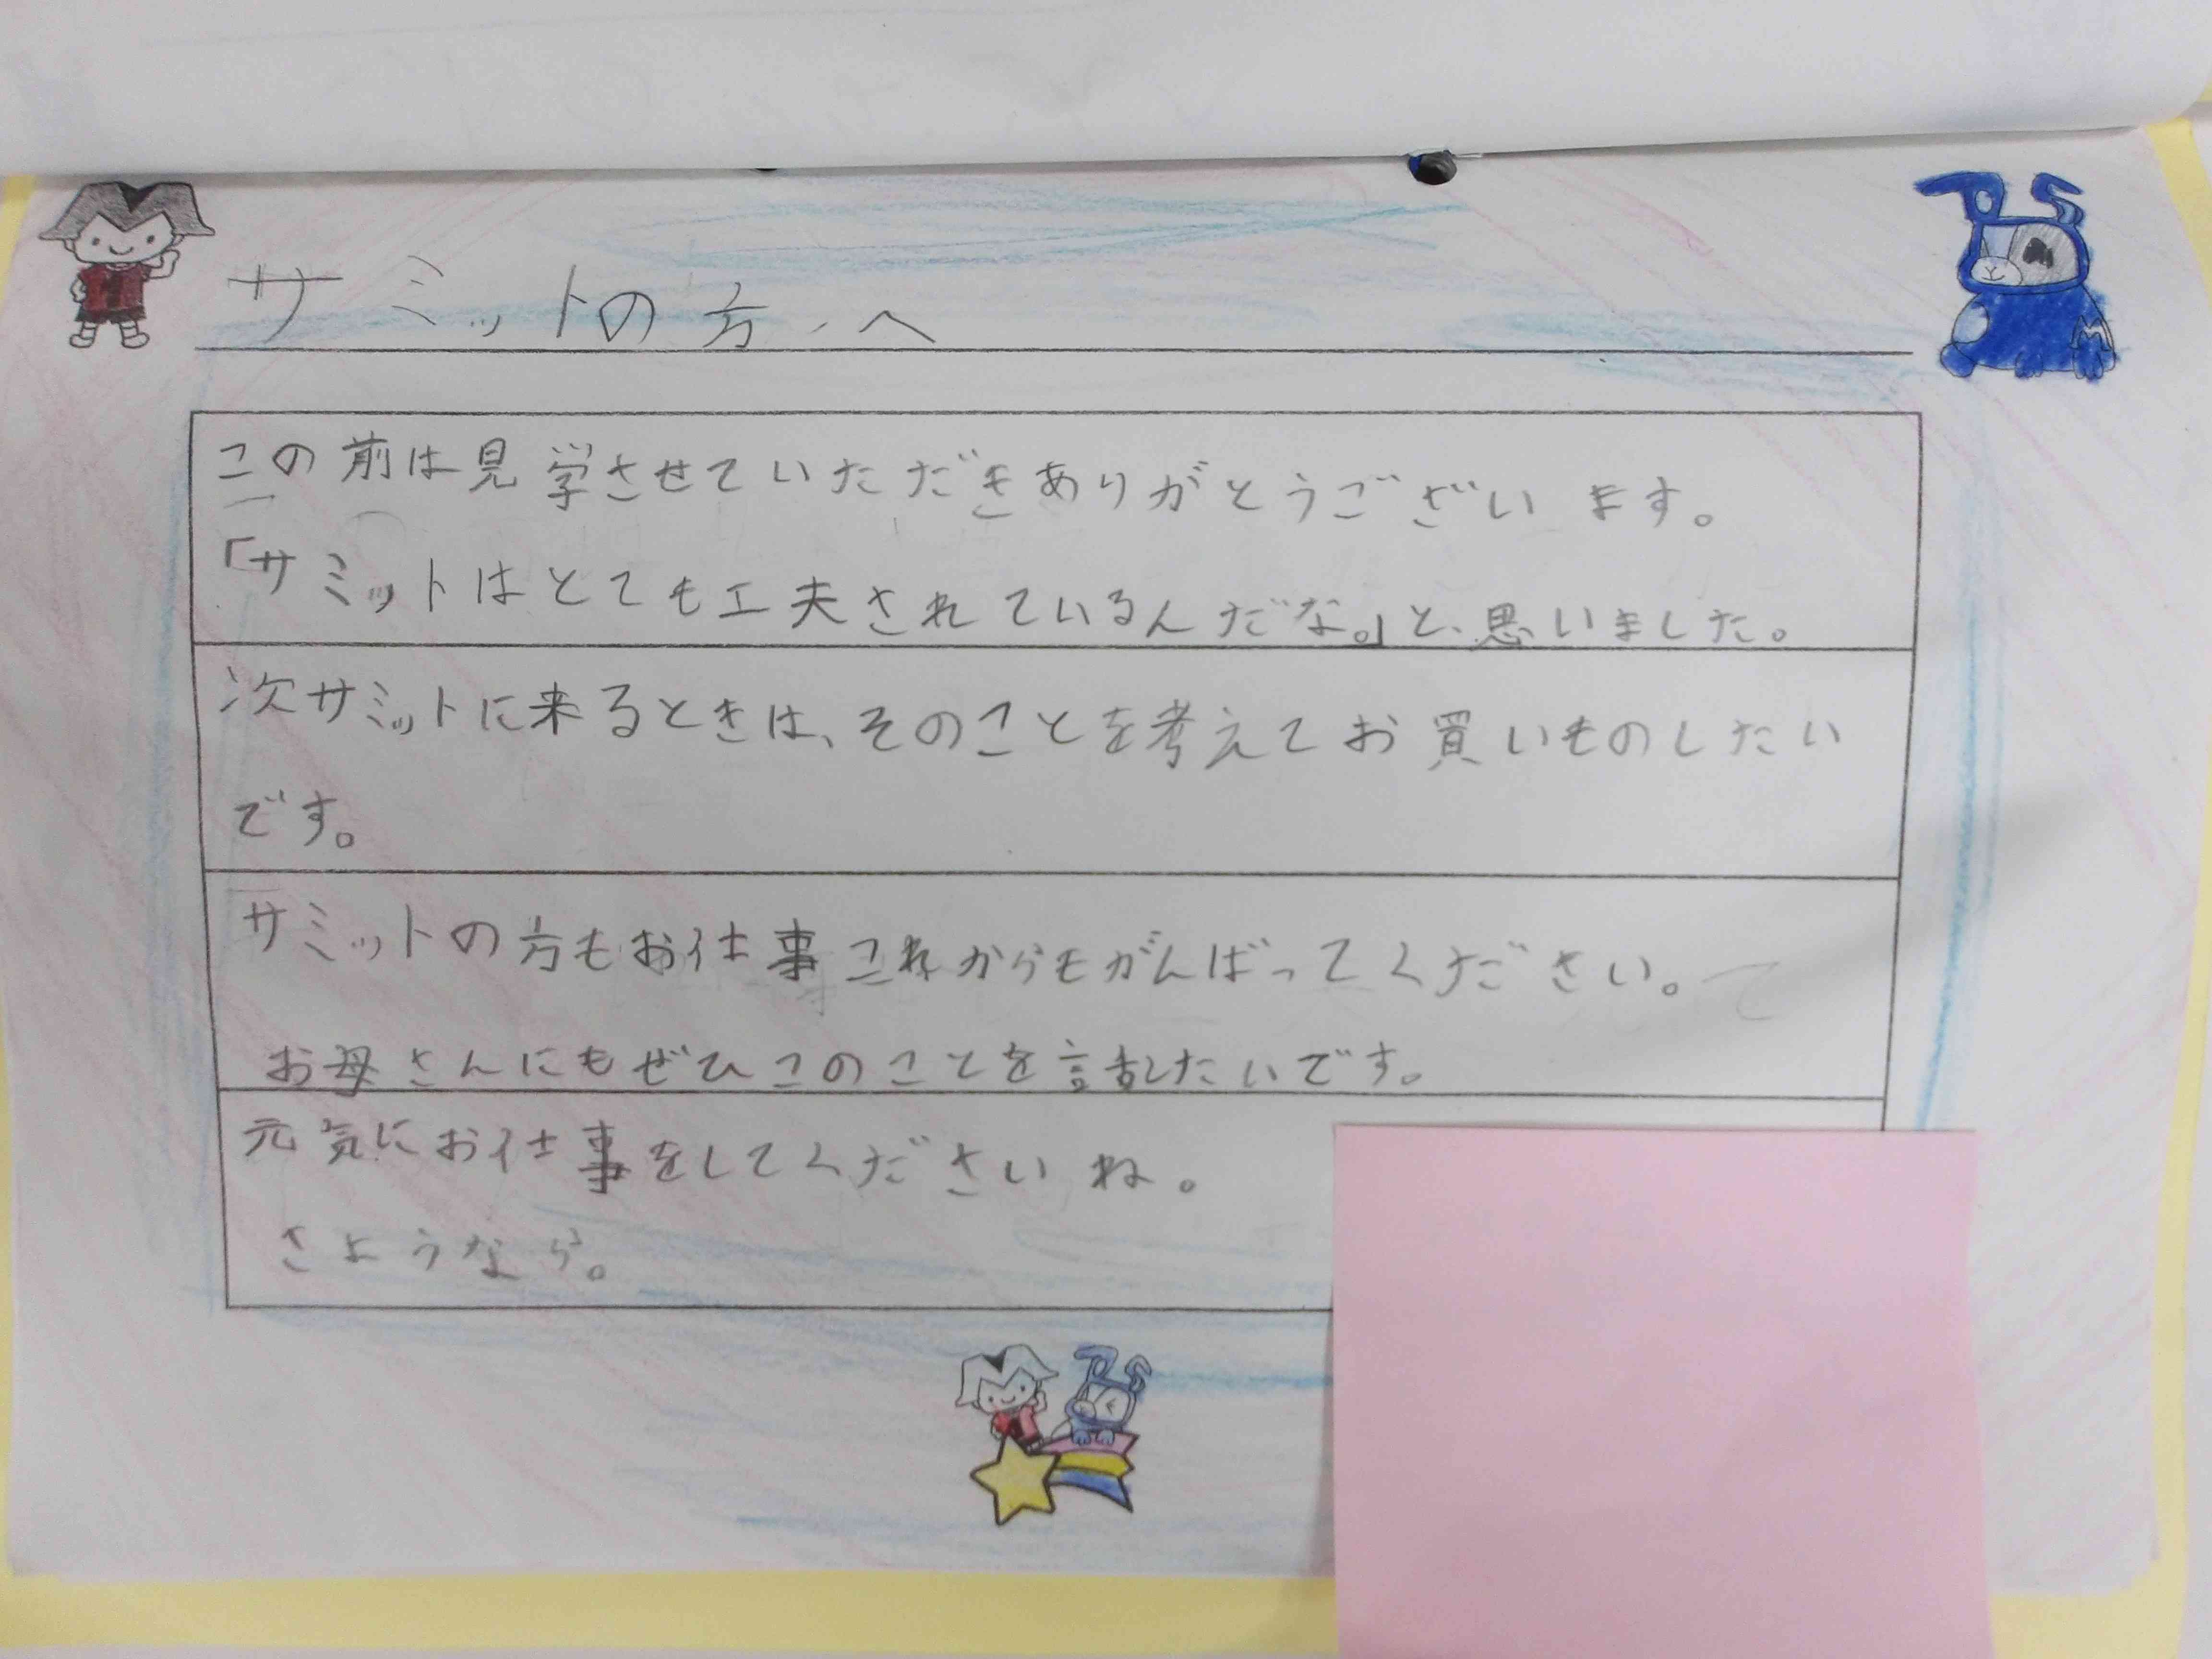 サミットの方へ
この前は見学させていただきありがとうございます。
「サミットはとても工夫されているんだな。」と、思いました。
次サミットに来るときは、そのことを考えてお買いものしたい
です。
サミットの方もお仕事これからもがんばってください。
お母さんにもぜひこのことを話したいです。
元気にお仕事をしてくださいね。
さようなら。